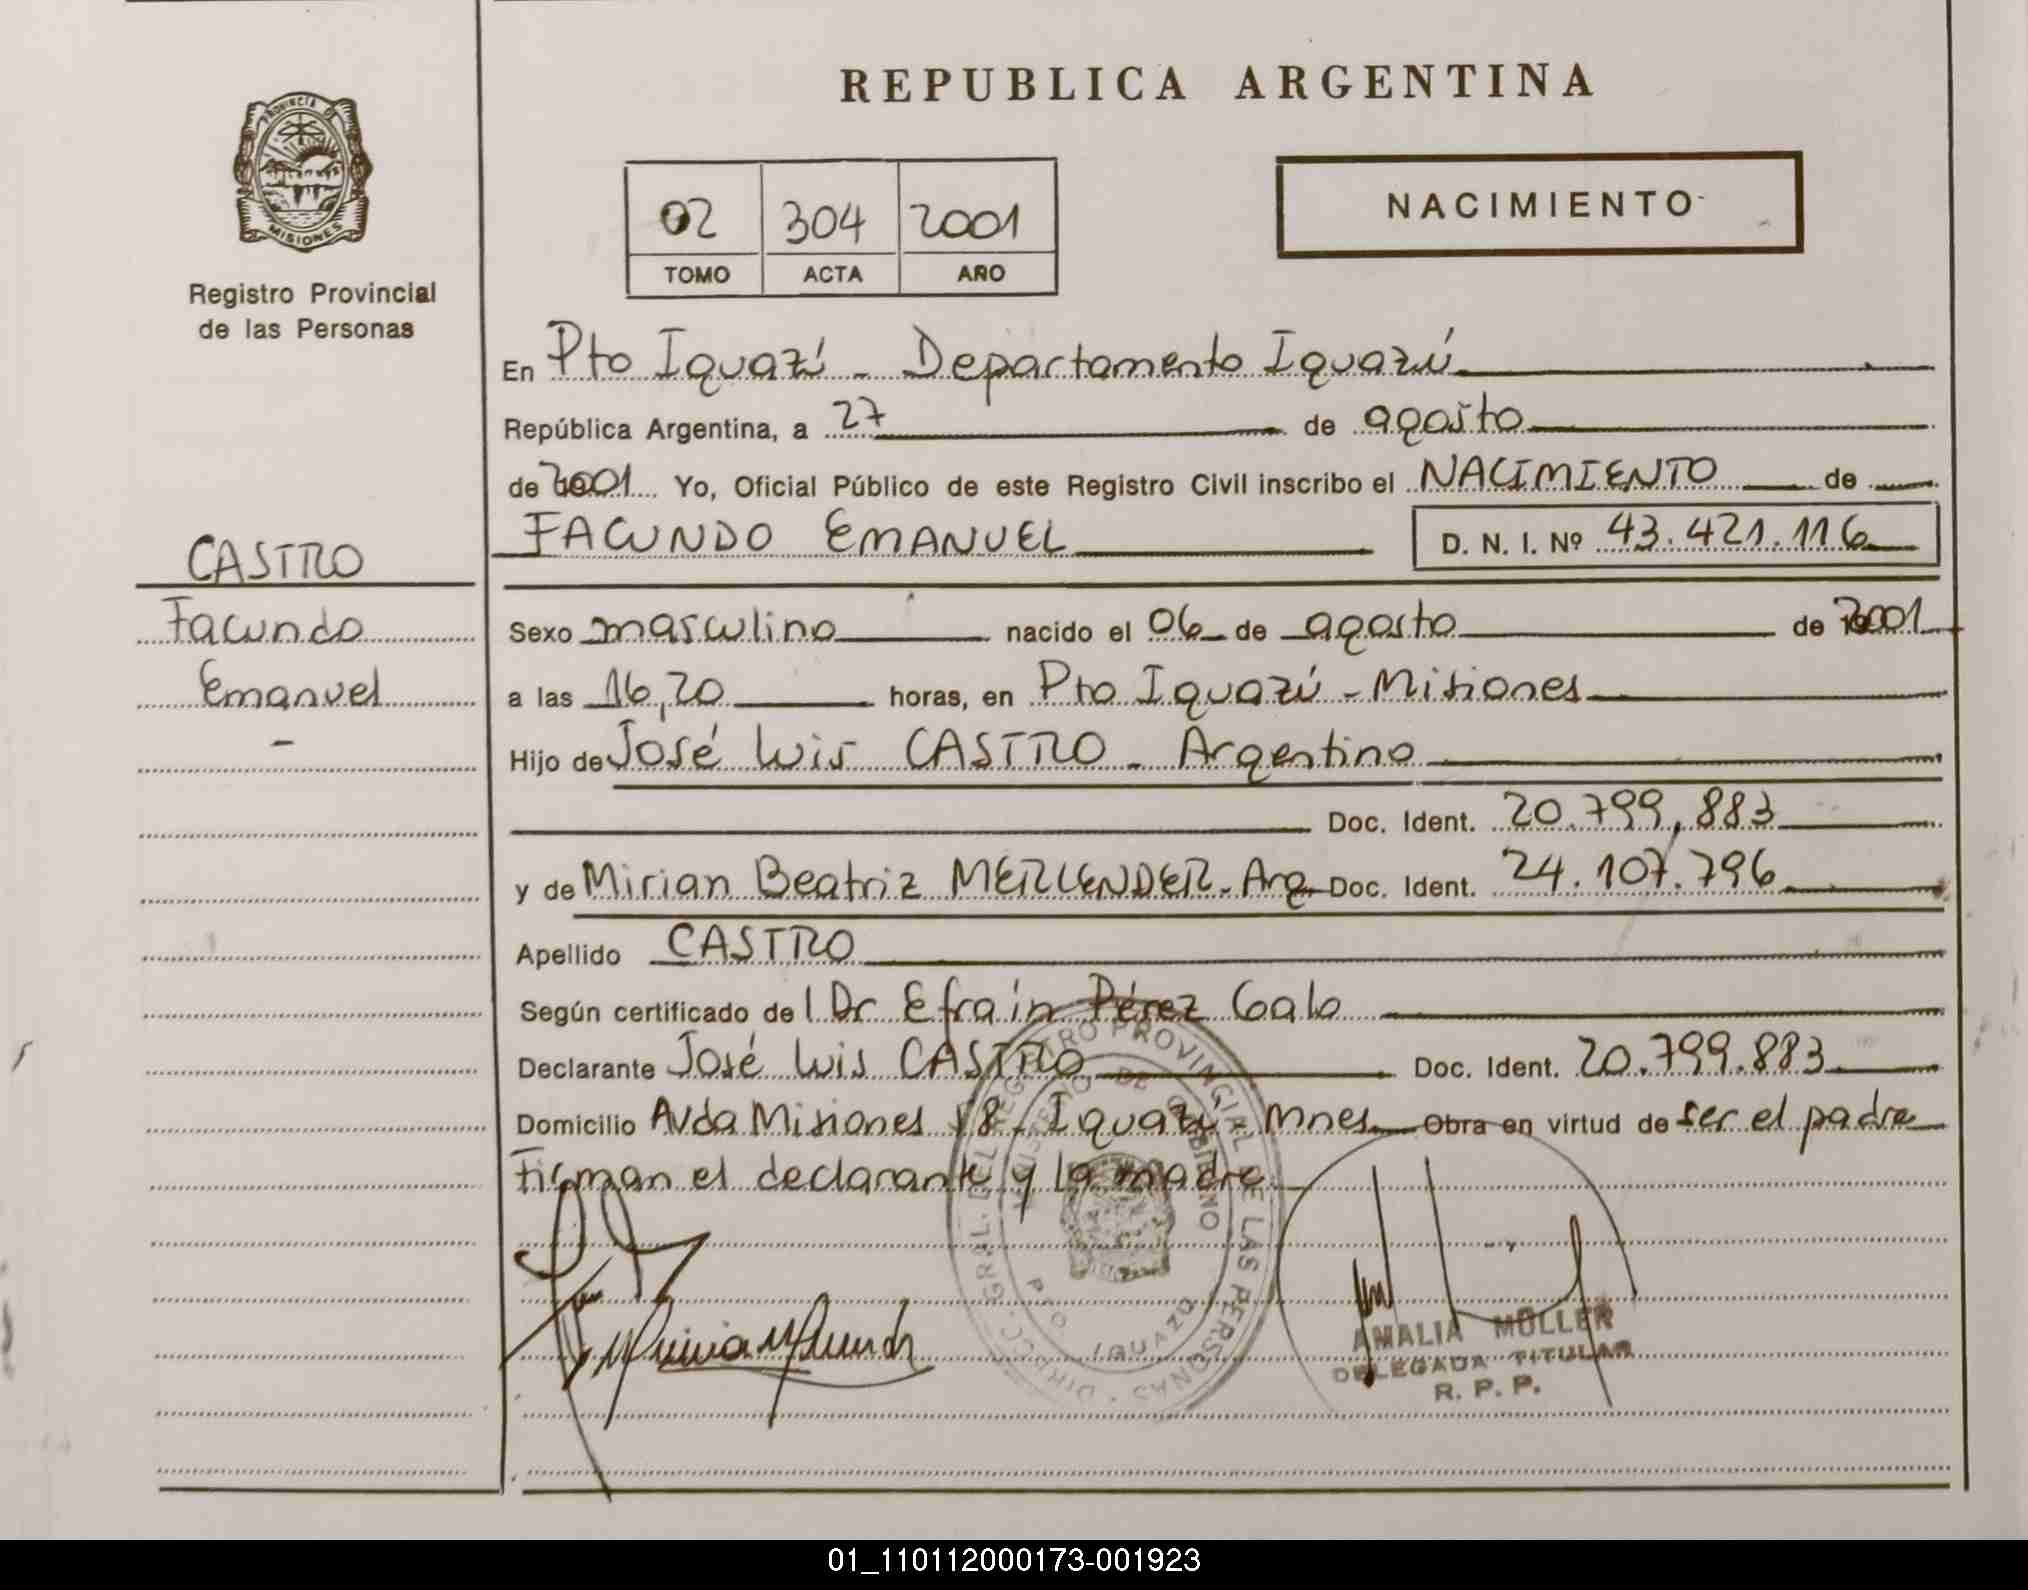 PROVINCIA DE
MISIONES
Registro Provincial
de las Personas
CASTRO
Facundo
Emanuel
-
REPUBLICA ARGENTINA
02 304 2001
TOMO ACTA AÑO
NACIMIENTO
En Pto Iguazú - Departamento Iguazú
República Argentina, a 27 de agosto
de 2001 Yo, Oficial Público de este Registro Civil inscribo el NACIMIENTO de
FACUNDO EMANUEL D. N. I. Nº 43.421.116
Sexo masculino nacido el 06 de agosto de 2001
a las 16,20 horas, en Pto Iguazú - Misiones
Hijo de José Luis CASTRO - Argentino
Doc. Ident. 20.799.883
y de Mirian Beatriz MERLENDER - Arg Doc. Ident. 24.107.796
Apellido CASTRO
Según certificado del Dr Efraín Pérez Galo
Declarante José Luis CASTRO Doc. Ident. 20.799.883
Domicilio Avda Misiones 18 - Iguazú Mnes Obra en virtud de ser el padre
Firman el declarante y la madre
DIRECC. GRAL. DEL REGISTRO PROVINCIAL DE LAS PERSONAS
MINISTERIO DE GOBIERNO
PTO. IGUAZU
AMALIA MÜLLER
DELEGADA TITULAR
R. P. P.
01_110112000173-001923